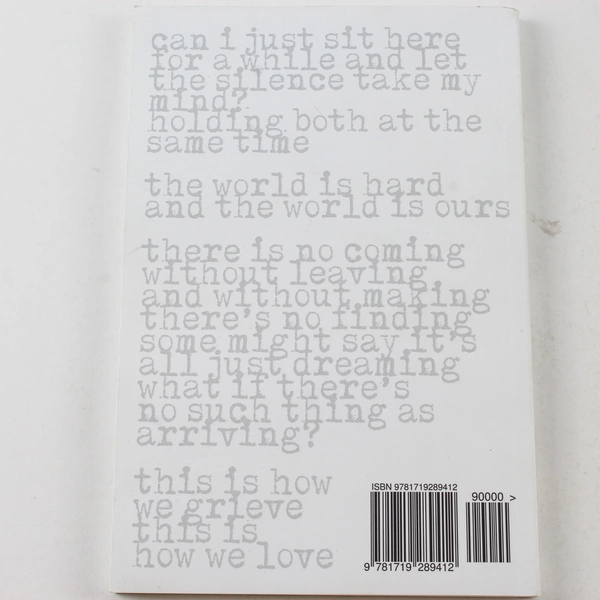 can i just sit here
for a while and let
the silence take my
mind?
holding both at the
same time
the world is hard
and the world is ours
there is no coming
without leaving
and without making
there's no finding
some might say it's
all just dreaming
what if there's
no such thing as
arriving?
this is how
we grieve
this is
how we love
ISBN 9781719289412
90000 >
9 781719 289412